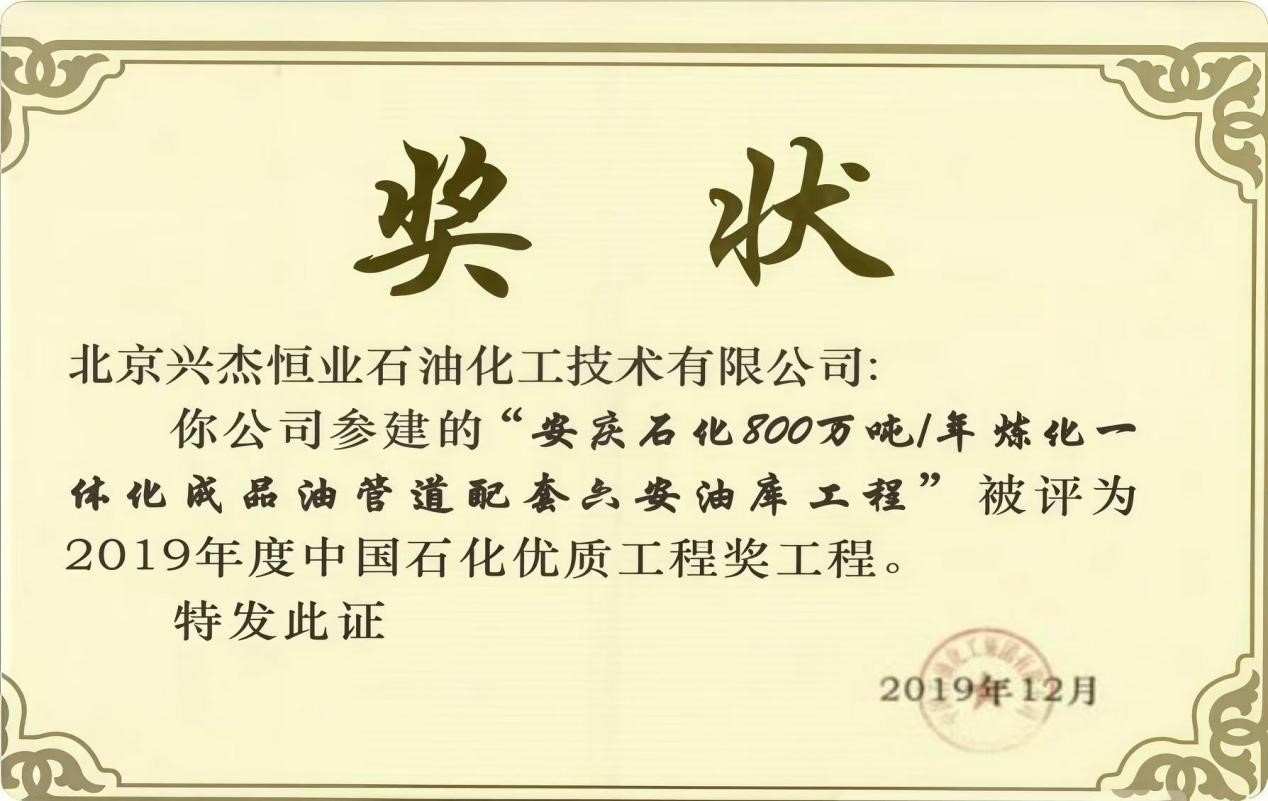 奖状
北京兴杰恒业石油化工技术有限公司:
你公司参建的“安庆石化800万吨/年炼化一
体化成品油管道配套六安油库工程”被评为
2019年度中国石化优质工程奖工程。
特发此证
2019年12月